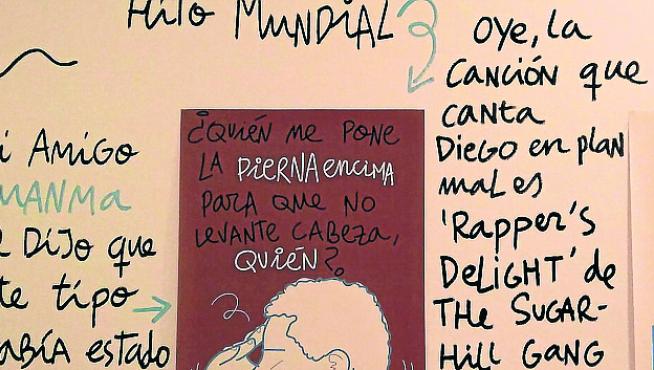 Hito MUNDIAL
i AMIGO
MANMA
DIJO que
te tipo
ABÍA estado
¿Quién me PONE
LA PIERNA encima
PARA QUE NO
LEVANTE CABEZA,
QUIÉN?
Oye, la
CANCIÓN que
canta
DIEGO en plan
mal es
'Rapper's
DELIGHT' de
THe SUGAR-
HILL GANG